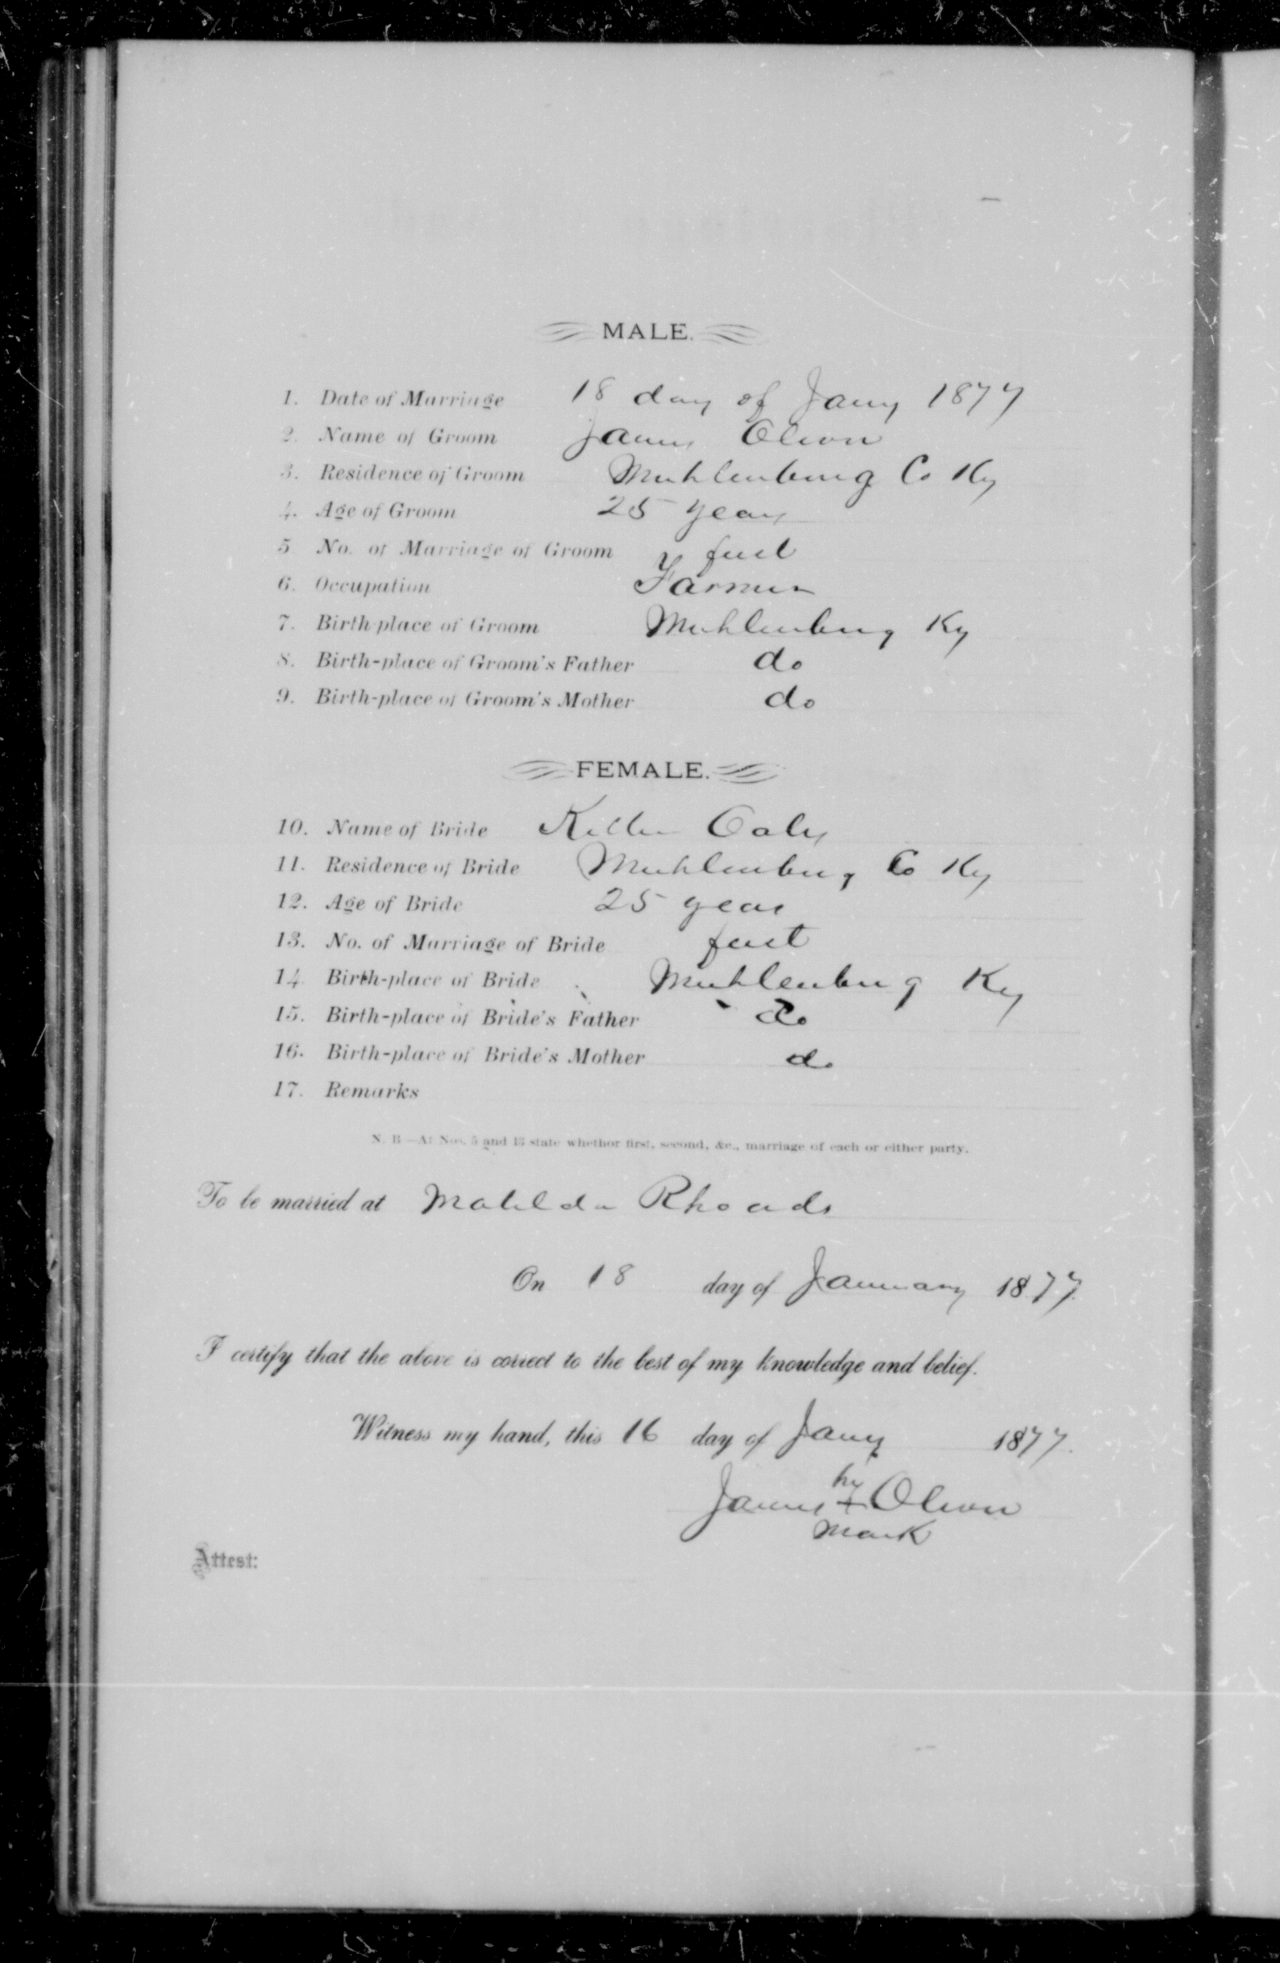 MALE.
1. Date of Marriage 18 day of Jany 1877
2. Name of Groom James
3. Residence of Groom Muhlenburg Co Ky
4. Age of Groom 25 years
5. No. of Marriage of Groom first
6. Occupation Farmer
7. Birth-place of Groom Muhlenburg Ky
8. Birth-place of Groom's Father do
9. Birth-place of Groom's Mother do
FEMALE.
10. Name of Bride
11. Residence of Bride Muhlenburg Co Ky
12. Age of Bride 25 years
13. No. of Marriage of Bride first
14. Birth-place of Bride Muhlenburg Ky
15. Birth-place of Bride's Father do
16. Birth-place of Bride's Mother do
17. Remarks
N. B.—At Nos. 5 and 13 state whether first, second, &c., marriage of each or either party.
To be married at Matilda Rhoads
On 18 day of January 1877.
I certify that the above is correct to the best of my knowledge and belief.
Witness my hand, this 16 day of Jany 1877.
James
mark
Attest: